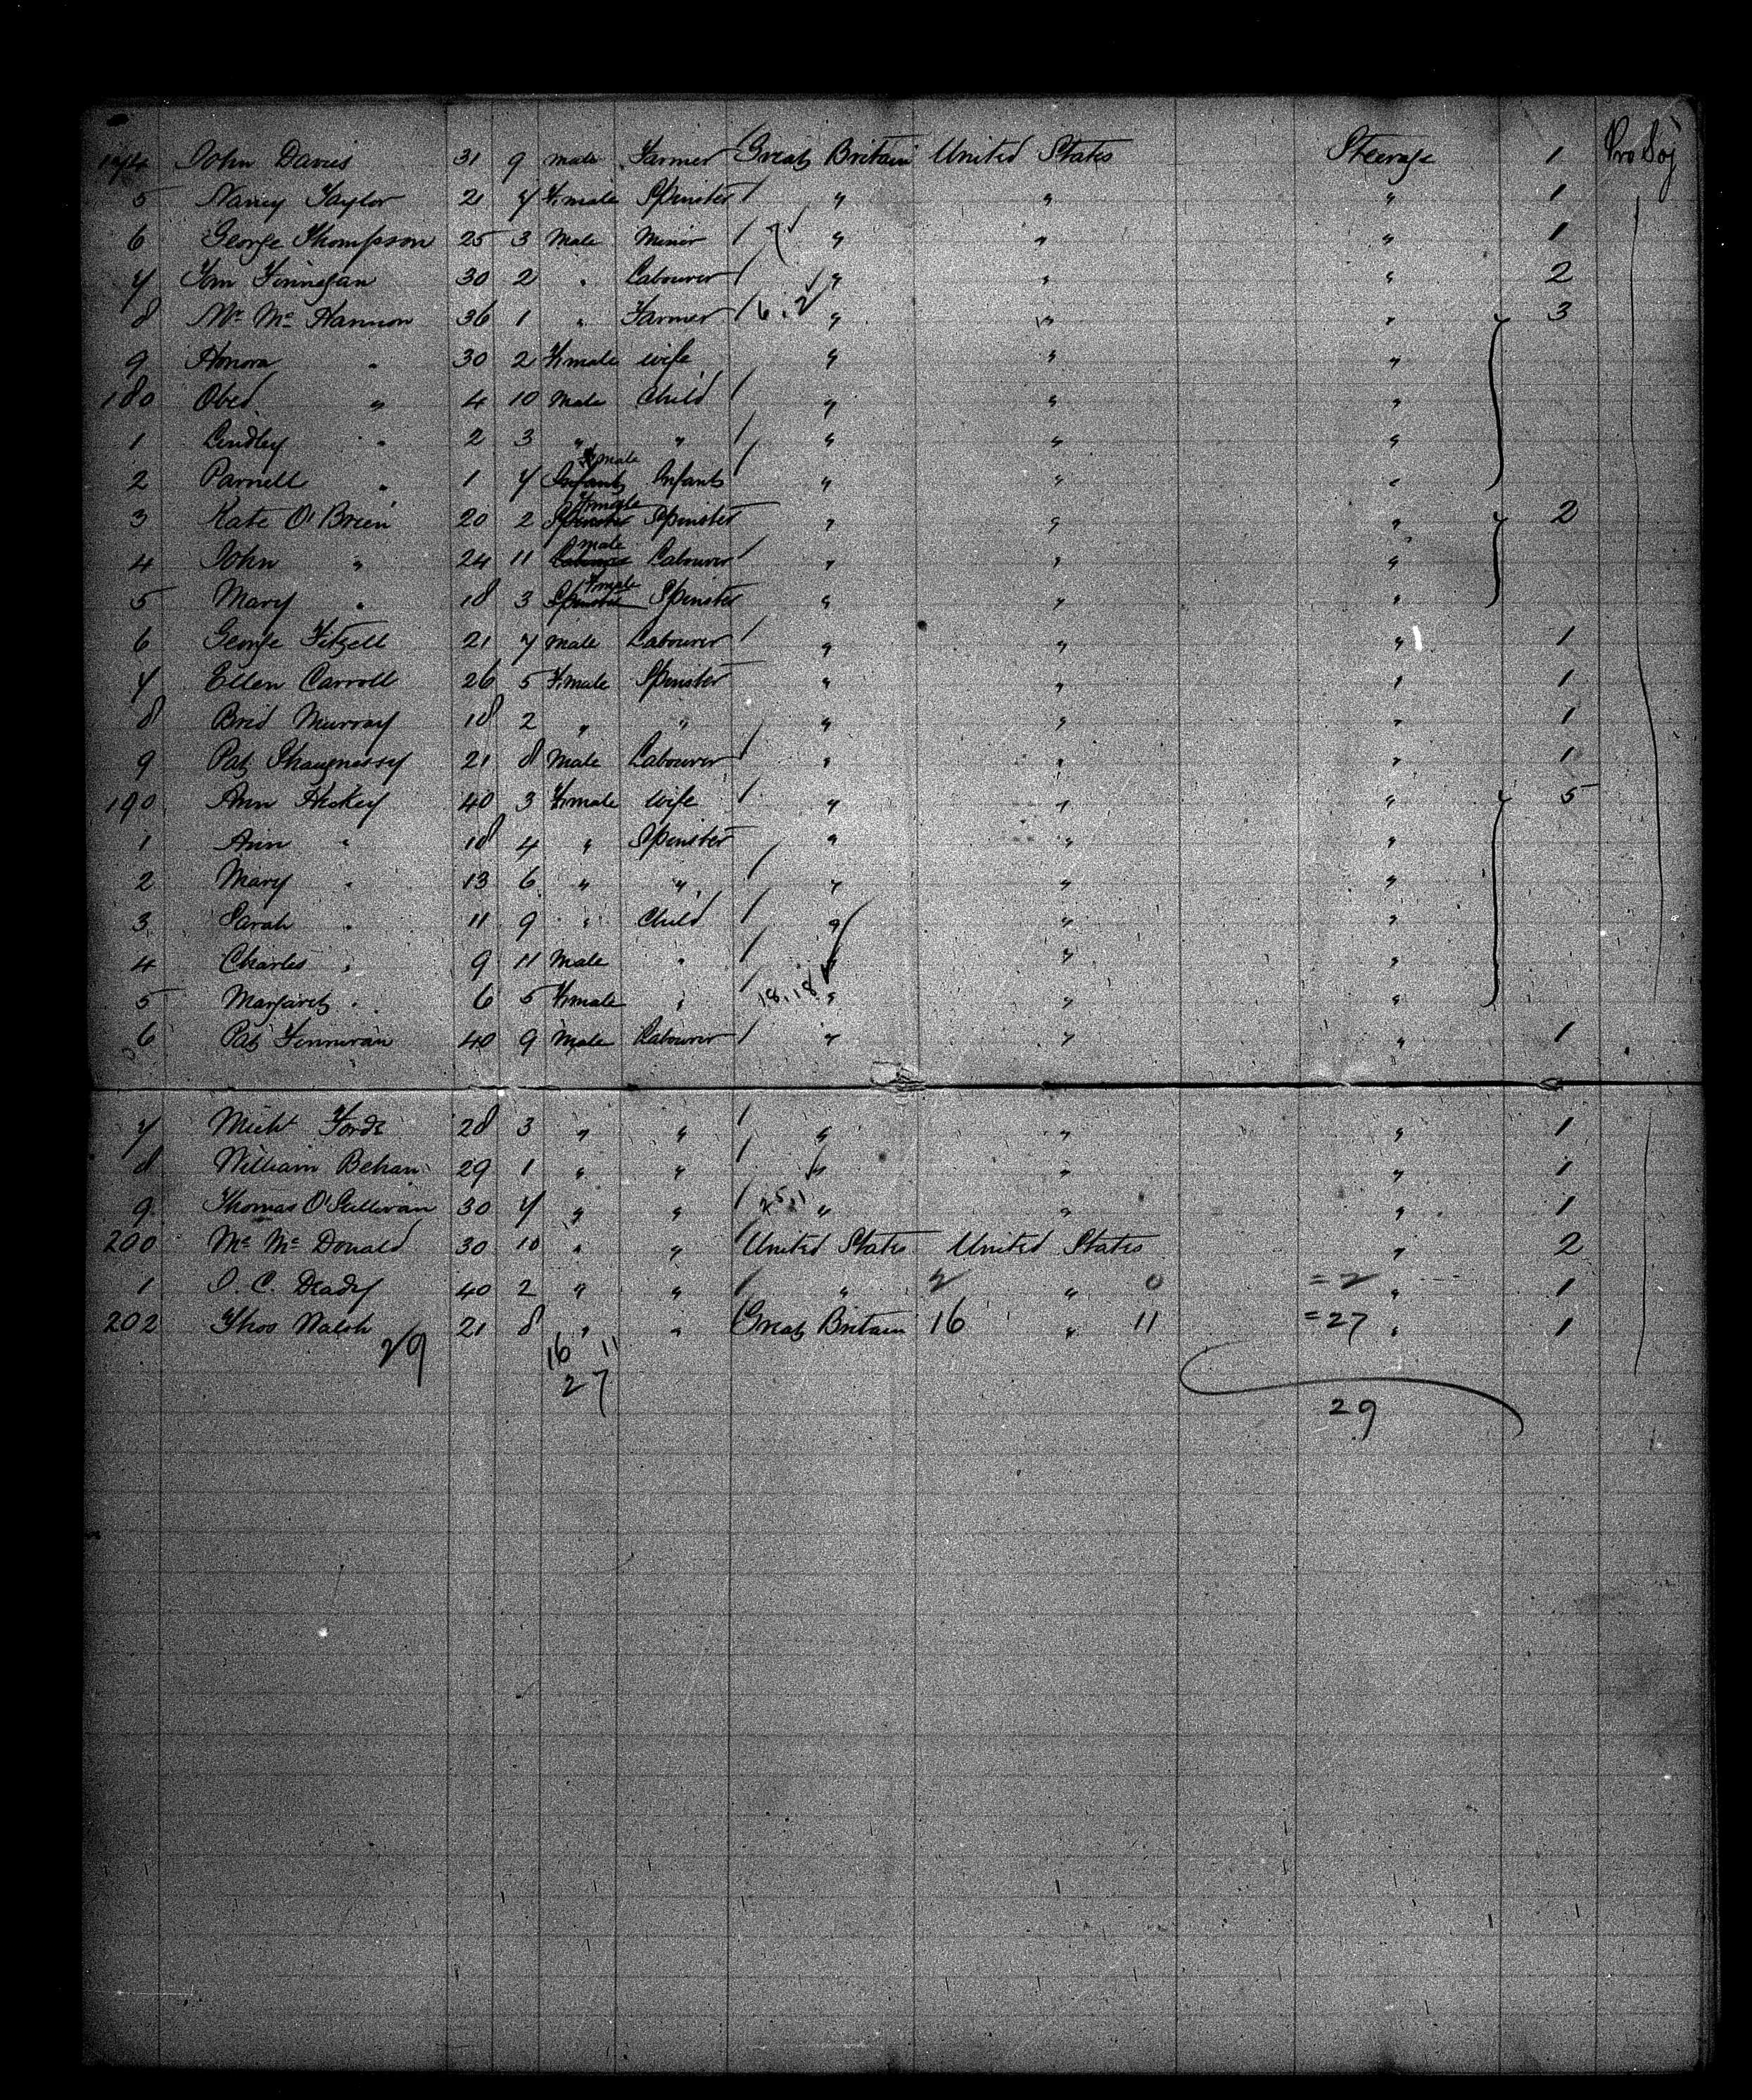 174 John Davies 31 9 male Farmer Great Britain United States Steerage 1 Pro Soj
5 Nancy Taylor 21 7 Female Spinster / " " " 1
6 George Thompson 25 3 Male Minor / " " " 1
7 Tom Finnegan 30 2 " Labourer / " " " 2
8 Mr Mc Hannon 36 1 " Farmer / 6.2 " " " 3
9 Honora " 30 2 Female wife " " "
180 Obed " 4 10 Male Child / " " "
1 Lindley " 2 3 " " / " " "
Female
2 Parnell " 1 7 Infant Infant / " " "
Female
3 Kate O'Brien 20 2 Spinster Spinster " " " 2
male
4 John " 24 11 Labourer Labourer / " " "
Female
5 Mary " 18 3 Spinster Spinster " " "
6 George Fitzell 21 7 Male Labourer / " " " 1
7 Ellen Carroll 26 5 Female Spinster " " " 1
8 Brid Murray 18 2 " " / " " " 1
9 Pat Shaugnessy 21 8 Male Labourer / " " " 1
190 Ann Hickey 40 3 Female wife / " " " 5
1 Ann " 18 4 " Spinster " " "
2 Mary " 13 6 " " / " " "
3 Sarah " 11 9 " Child / " " "
4 Charles " 9 11 Male " / " " "
5 Margaret " 6 5 Female " / 18.18 " " "
6 Pat 40 9 Male Labourer / " " " 1
7 Michl Forde 28 3 " " / " " " 1
8 William Behan 29 1 " " / " " " 1
9 Thomas O'Sullivan 30 7 " " / " " " 1
200 Mc Mc Donald 30 10 " " United States United States " 2
1 J. C. Deady 40 2 " " / " 2 " 0 = 2 " 1
202 Thos Walsh 21 8 " " Great Britain 16 " 11 = 27 " 1
29 16 11
27
29